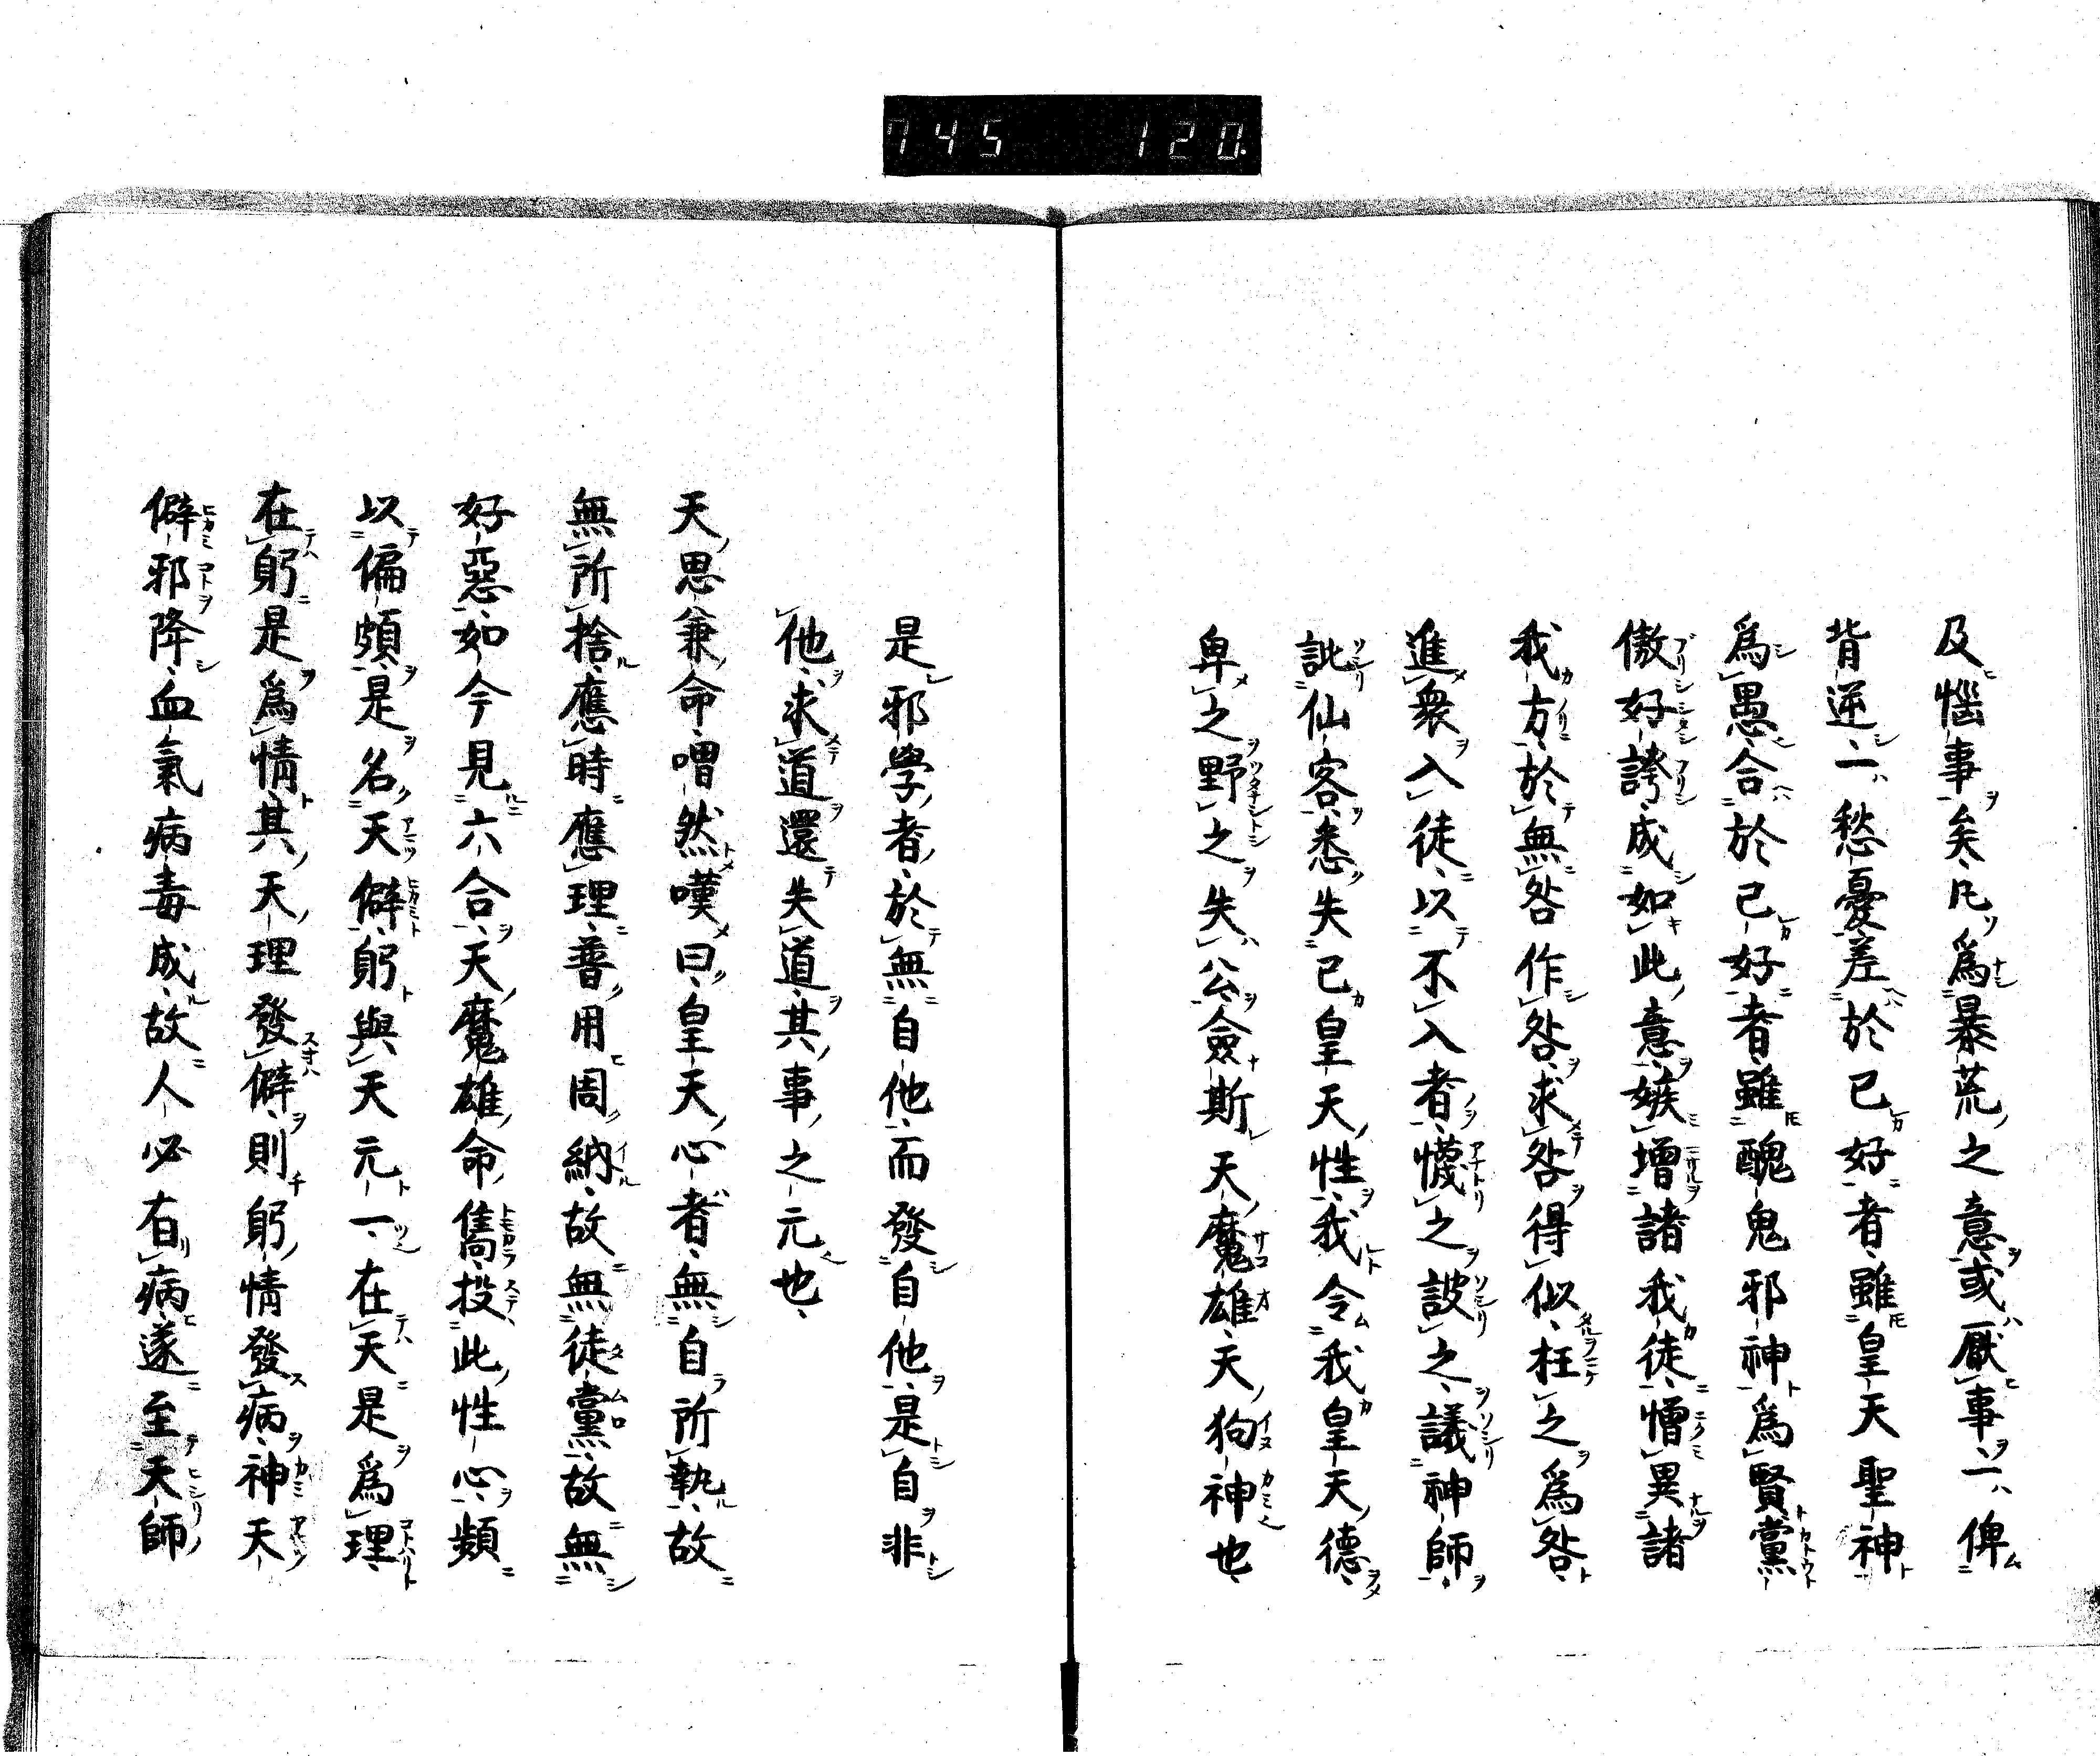 745 120
及惱事矣凡爲暴荒之意或厭事一俾
背逆一愁憂差於已好者雖皇天聖神
爲愚合於已好者雖醜鬼邪神爲賢黨
傲好誇成如此意嫉增諸我徒憎異諸
我方於無咎作咎求咎得似枉之爲咎
進衆入徒以不入者懱之詖之議神師
訿仙客悉失已皇天性我令我皇天德
卑之野之失公僉斯天魔雄天狗神也
是邪學者於無自他而發自他是自非
他求道還失道其事之元也
天思兼命喟然嘆曰皇天心者無自所執故
無所捨應時應理普用周納故無徒黨故無
好惡如今見六合天魔雄命儁投此性心頻
以偏頗是名天僻躬與天元一在天是爲理
在躬是爲情其天理發僻則躬情發病神天
僻邪降血氣病毒成故人必有病遂至天師